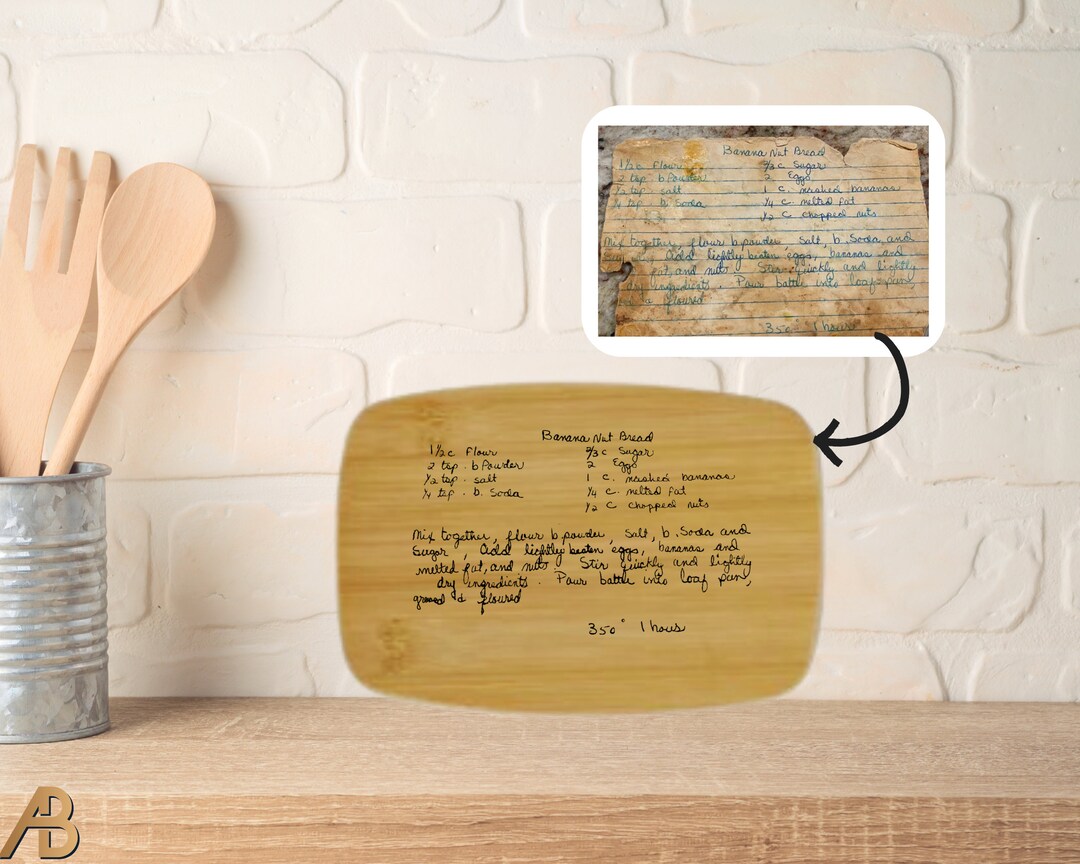 Banana Nut Bread
1½ c Flour ⅔ c Sugar
2 tsp. b Powder 2 Eggs
½ tsp. salt 1 c. mashed bananas
¼ tsp. b. Soda ¼ c. melted fat
½ c chopped nuts
Mix together, flour b powder, Salt, b. Soda, and
Add lightly beaten eggs, bananas and
fat, and nuts. Stir quickly and lightly
dry ingredients. Pour battle into loaf pan,
floured
350° 1 hour
Banana Nut Bread
1½ c Flour ⅔ c Sugar
2 tsp. b Powder 2 Eggs
½ tsp. salt 1 c. mashed bananas
¼ tsp. b. Soda ¼ c. melted fat
½ c chopped nuts
Mix together, flour b powder, Salt, b. Soda and
Sugar, Add lightly beaten eggs, bananas and
melted fat, and nuts. Stir quickly and lightly
dry ingredients. Pour battle into loaf pan,
greased & floured
350° 1 hour
AB